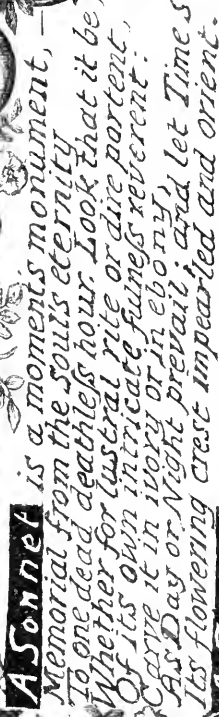 A Sonnet is a moments monument,—
Memorial from the Souls eternity
To one dead deathleſs hour. Look that it be,
Whether for luſtral rite or dire portent,
Of its own intricate fulneſs reverent:
Carve it in ivory or in ebony,
As Day or Night prevail; and let Time s
Its flowering crest impearled and orient.